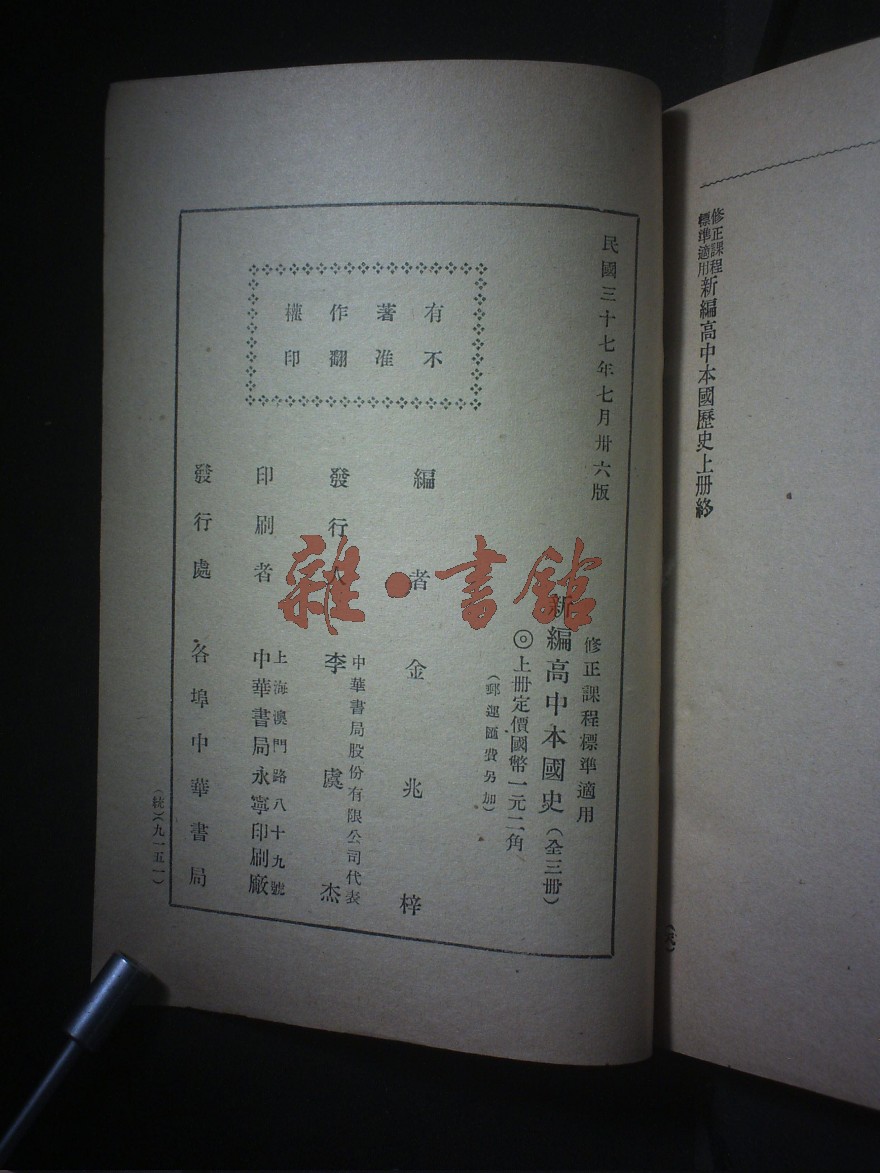 修正課程
標準適用新編高中本國歷史上册終
民國三十七年七月卅六版
修正課程標準適用
新編高中本國史(全三册)
◎上册定價國幣一元二角
(郵運匯費另加)
有不
著准
作翻
權印
編者 金兆梓
發行人 李虞杰
中華書局股份有限公司代表
印刷者
上海澳門路八十九號
中華書局永寧印刷廠
發行處 各埠中華書局
(統)(九一五一)
雜·書館